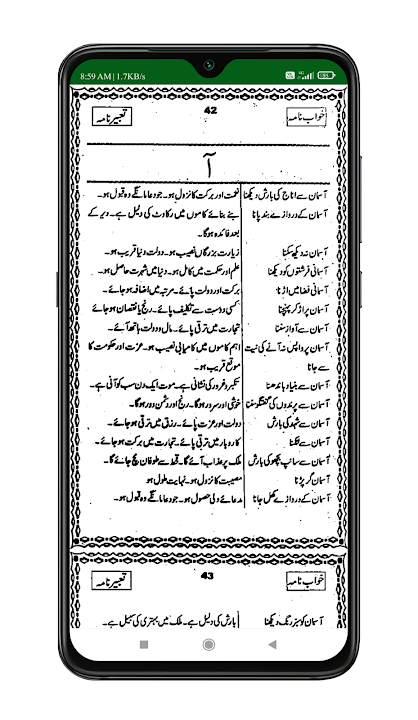 8:59 AM | 1.7KB/s
خواب نامہ 42 تعبیر نامہ
آ
آسمان سے اناج کی بارش دیکھنا نعمت اور برکت کا نزول ہو۔ جو دعا مانگے وہ قبول ہو۔
آسمان کے دروازے بند پانا بنے بنائے کاموں میں رکاوٹ کی دلیل ہے۔ دیر کے
بعد فائدہ ہوگا۔
آسمان نہ دیکھ سکنا زیارت بزرگاں نصیب ہو۔ دولت دنیا قریب ہو۔
آسمانی فرشتوں کو دیکھنا علم اور حکمت میں کامل ہو۔ دنیا میں شہرت حاصل ہو۔
آسمانی فضا میں اڑنا برکت اور دولت پائے۔ مرتبہ میں اضافہ ہو جائے۔
آسمان پر اڑ کر پہنچنا کسی دوست سے تکلیف پائے۔ رنج یا نقصان ہو جائے
آسمان سے آواز سننا تجارت میں ترقی پائے۔ مال و دولت ہاتھ آئے۔
آسمان پر واپس نہ آنے کی نیت اہم کاموں میں کامیابی نصیب ہو۔ عزت اور حکومت کا
سے جانا موقع قریب ہو۔
آسمان سے بنیاد باندھنا تکبر و غرور کی نشانی ہے۔ موت ایک دن سب کو آنی ہے۔
آسمان سے پرندوں کی گفتگو سننا خوشی اور سرور ہوگا۔ رنج اور دشمن دور ہوگا۔
آسمان سے شہد کی بارش دولت اور عزت پائے۔ رزق میں ترقی ہو جائے۔
آسمان سے لٹکنا کاروبار میں ترقی پائے۔ تجارت میں برکت ہو جائے۔
آسمان سے سانپ بچھو کی بارش ملک پر عذاب آئے گا۔ قحط سے طوفان مچ جائے گا۔
آسمان گر پڑنا مصیبت کا نزول ہو۔ نہایت ملول ہو
آسمان کے دروازے کھل جانا مدعائے دلی حصول ہو۔ جو دعا مانگے وہ قبول ہو۔
خواب نامہ 43 تعبیر نامہ
آسمان کو سبز رنگ دیکھنا بارش کی دلیل ہے۔ ملک میں بہتری کی سبیل ہے۔